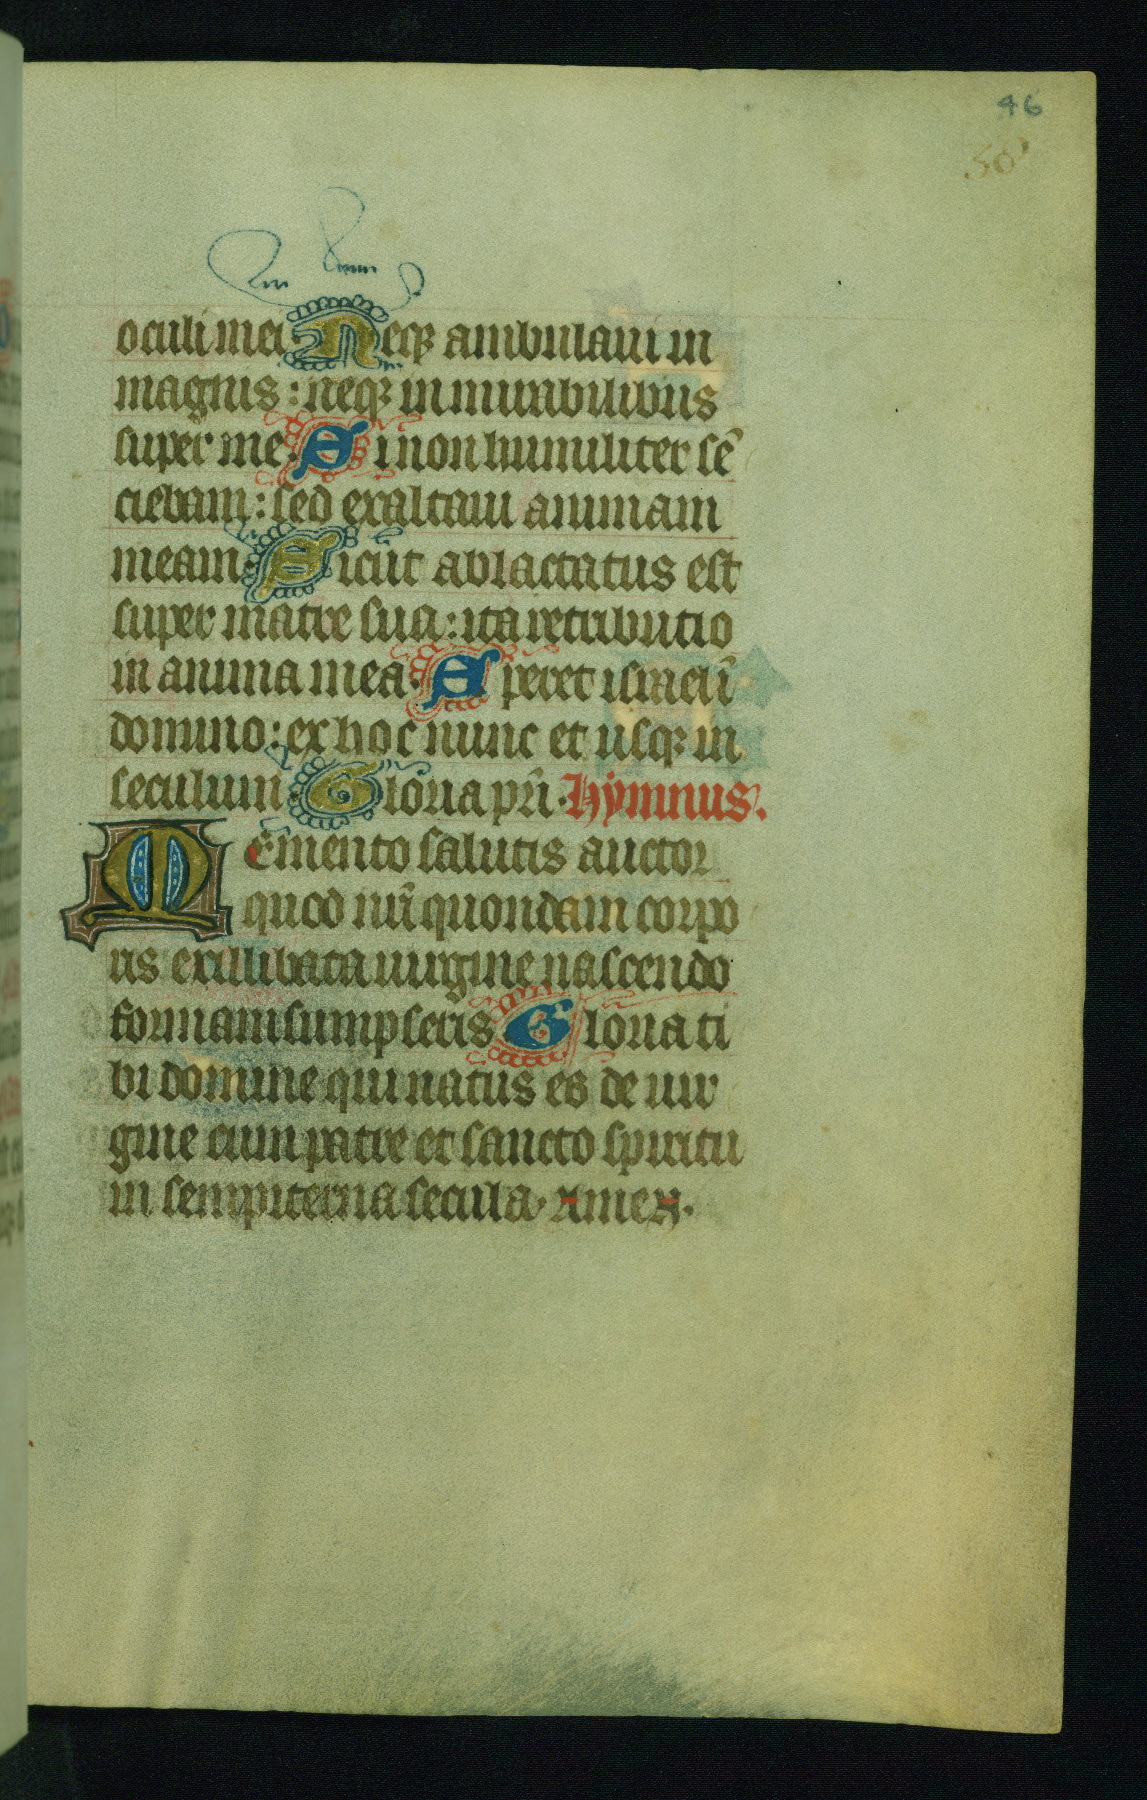 46
50
oculi mei Neqꝫ ambulaui in
magnis : neqꝫ in mirabilibus
super me. Si non humiliter sē
ciebam : sed exaltaui animam
meam. Sicut ablactatus est
super matre sua : ita retributio
in anima mea. Speret israel ī
domino : ex hoc nunc et usqꝫ in
seculum. Gloria pr̄i. Hymnus.
Memento salutis auctor
quod nr̄i quondam corpo
ris ex illibata uirgine nascendo
formam sumpseris Gloria ti
bi domine qui natus es de uir
gine cum patre et sancto spiritu
in sempiterna secula. Amen.